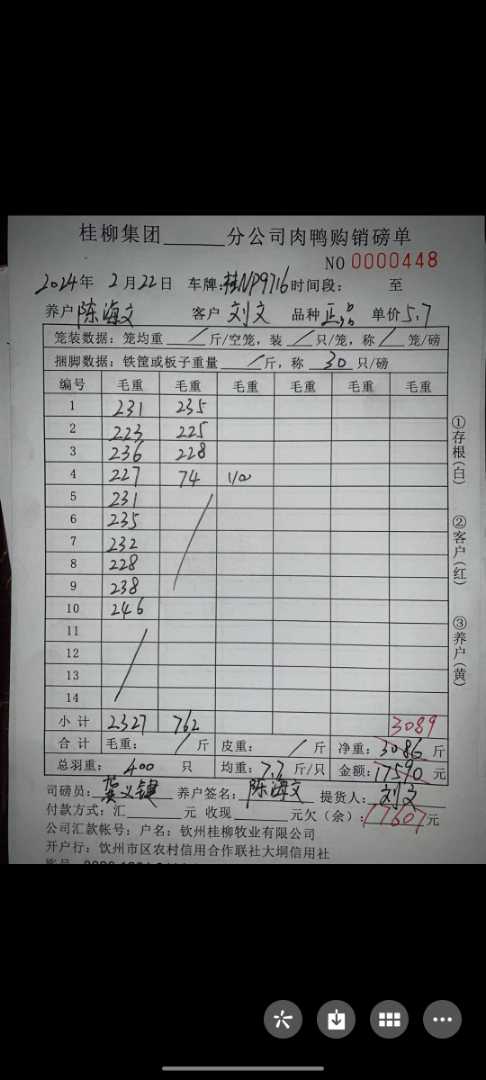 桂柳集团______分公司肉鸭购销磅单
NO 0000448
2024年 2月22日 车牌:桂NP9716 时间段: 至
养户 陈海文 客户 刘文 品种 正品 单价 5.7
笼装数据:笼均重 / 斤/空笼,装 / 只/笼,称 / 笼/磅
捆脚数据:铁筐或板子重量 / 斤,称 30 只/磅
编号 毛重 毛重 毛重 毛重 毛重 毛重
1 231 235
2 223 225
3 236 228
4 227 74 1/0
5 231
6 235
7 232
8 228
9 238
10 246
11
12
13
14
小计 2327 762 3089
合计 毛重: / 斤 皮重: / 斤 净重:3086 斤
总羽重: 400 只 均重:7.7 斤/只 金额:17590 元
司磅员: 养户签名:陈海文 提货人:刘文
付款方式:汇______元 收现______元欠(余):17607元
公司汇款帐号:户名:钦州桂柳牧业有限公司
开户行:钦州市区农村信用合作联社大垌信用社
①存根(白)
②客户(红)
③养户(黄)